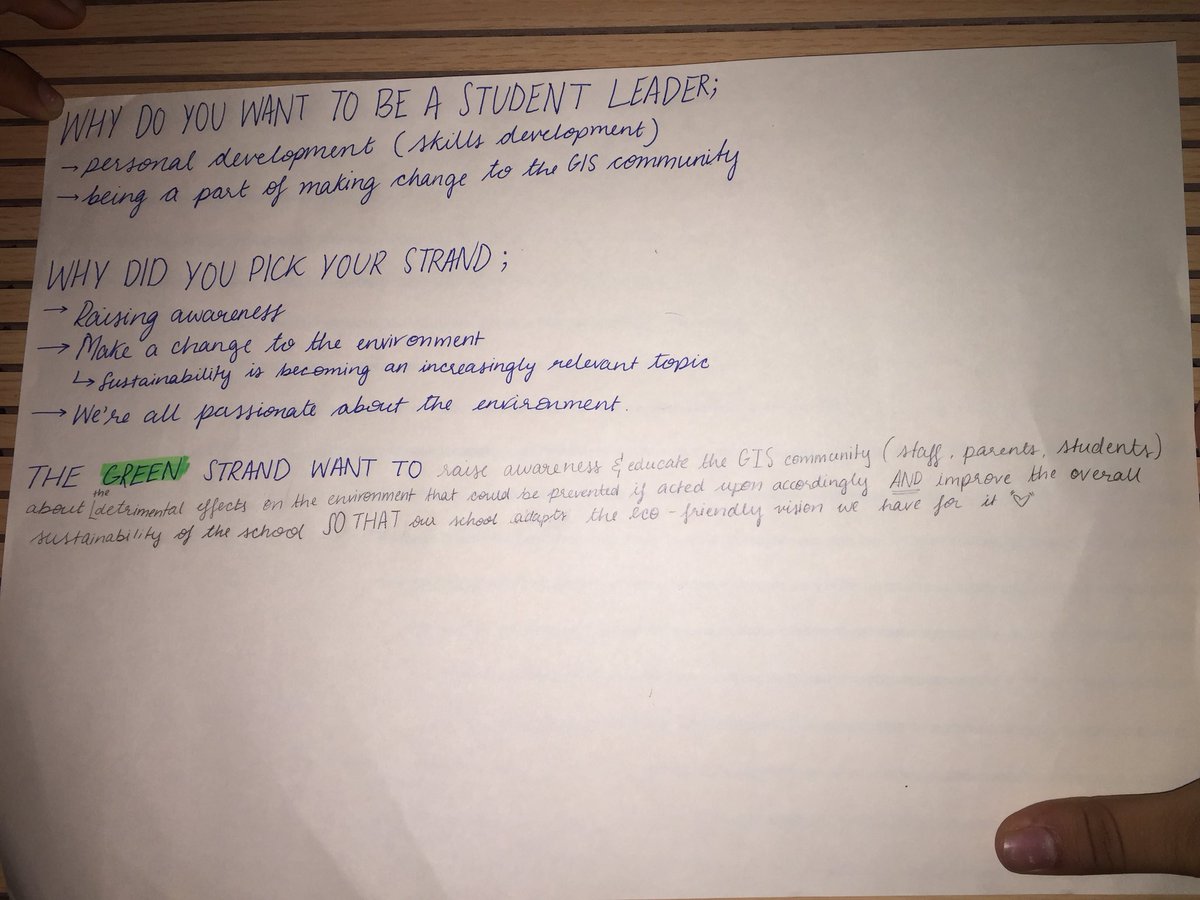 WHY DO YOU WANT TO BE A STUDENT LEADER;
→ personal development (skills development)
→ being a part of making change to the GIS community
WHY DID YOU PICK YOUR STRAND;
→ Raising awareness
→ Make a change to the environment
↳ Sustainability is becoming an increasingly relevant topic
→ We're all passionate about the environment.
THE GREEN STRAND WANT TO raise awareness & educate the GIS community (staff, parents, students)
about the detrimental effects on the environment that could be prevented if acted upon accordingly AND improve the overall
sustainability of the school SO THAT our school adapts the eco-friendly vision we have for it ♡